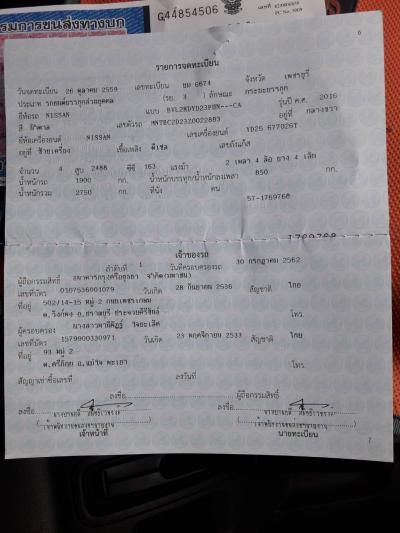 รมการขนส่งทางบก
G44854506
6
รายการจดทะเบียน
วันจดทะเบียน 26 ตุลาคม 2559 เลขทะเบียน 6674 จังหวัด เพชรบุรี
ประเภท รถยนต์บรรทุกส่วนบุคคล (รย. 3) ลักษณะ กระบะบรรทุก
ยี่ห้อรถ NISSAN แบบ รุ่นปี ค.ศ. 2016
สี เลขตัวรถ อยู่ที่ กลางขวา
ยี่ห้อเครื่องยนต์ NISSAN เลขเครื่องยนต์ YD25 677026T
อยู่ที่ ซ้ายเครื่อง เชื้อเพลิง ดีเซล เลขถังแก๊ส
จำนวน 4 สูบ 2488 ซีซี 163 แรงม้า 2 เพลา 4 ล้อ ยาง 4 เส้น
น้ำหนักรถ 1900 กก. น้ำหนักบรรทุก/น้ำหนักลงเพลา 850 กก.
น้ำหนักรวม 2750 กก. ที่นั่ง คน
57-1769768
เจ้าของรถ
ลำดับที่ 1 วันที่ครอบครองรถ 10 กรกฎาคม 2562
ผู้ถือกรรมสิทธิ์ ธนาคารกรุงศรีอยุธยา จำกัด(มหาชน)
เลขที่บัตร 0107536001079 วันเกิด 28 กันยายน 2536 สัญชาติ ไทย
ที่อยู่ 502/14-15 หมู่ 2 ถนนเพชรเกษม
ต.วังก์พง อ.ปราณบุรี ประจวบคีรีขันธ์ โทร.
ผู้ครอบครอง
เลขที่บัตร 1579900330971 วันเกิด 23 พฤศจิกายน 2533 สัญชาติ ไทย
ที่อยู่ 93 หมู่ 2
ต.ศรีถ้อย อ.แม่ใจ พะเยา โทร.
สัญญาเช่าซื้อเลขที่ ลงวันที่
ลงชื่อ ผู้ถือกรรมสิทธิ์
ลงชื่อ ลงชื่อ
เจ้าหน้าที่ นายทะเบียน
7